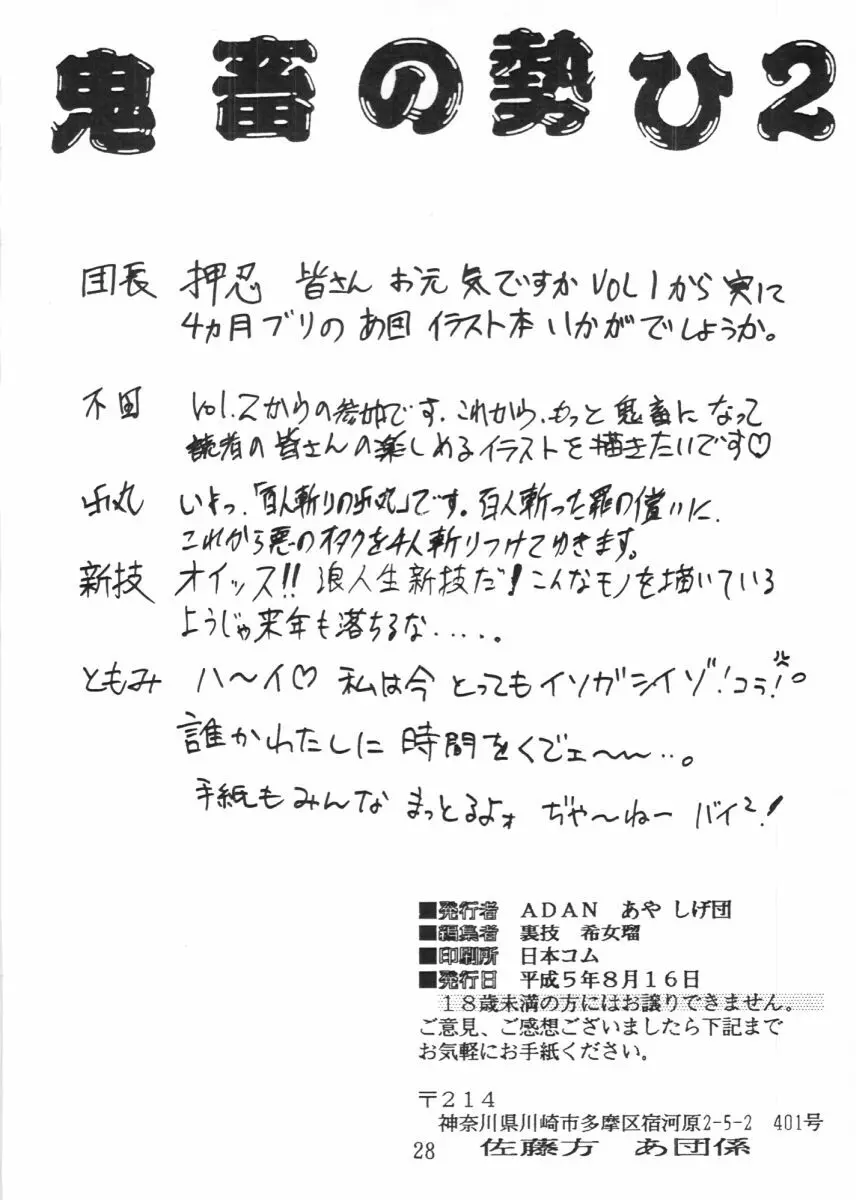 鬼畜の勢ひ2
団長 押忍 皆さん お元気ですか VOL1から実に
4ヵ月ブリの あ団 イラスト本 いかがでしょうか。
不田 Vol.2からの参加です。これから、もっと鬼畜になって
読者の皆さんの楽しめるイラストを描きたいです♡
いよっ、「百人斬りの 丸」です。百人斬った罪の償いに、
これから悪のオタクを4人斬りつけてゆきます。
新技 オイッス!! 浪人生新技だ!こんなモノを描いている
ようじゃ来年も落ちるな.....。
ともみ ハ〜イ♡ 私は今 とってもイソガシイゾ!コラ!。
誰かわたしに 時間をくでェ〜〜...。
手紙もみんな まっとるよォ ぢゃ〜ねー バイ2!
■発行者 ADAN あや しげ団
■編集者 裏技 希女瑠
■印刷所 日本コム
■発行日 平成5年8月16日
18歳未満の方にはお譲りできません。
ご意見、ご感想ございましたら下記まで
お気軽にお手紙ください。
〒214
神奈川県川崎市多摩区宿河原2-5-2 401号
28 佐藤方 あ団係